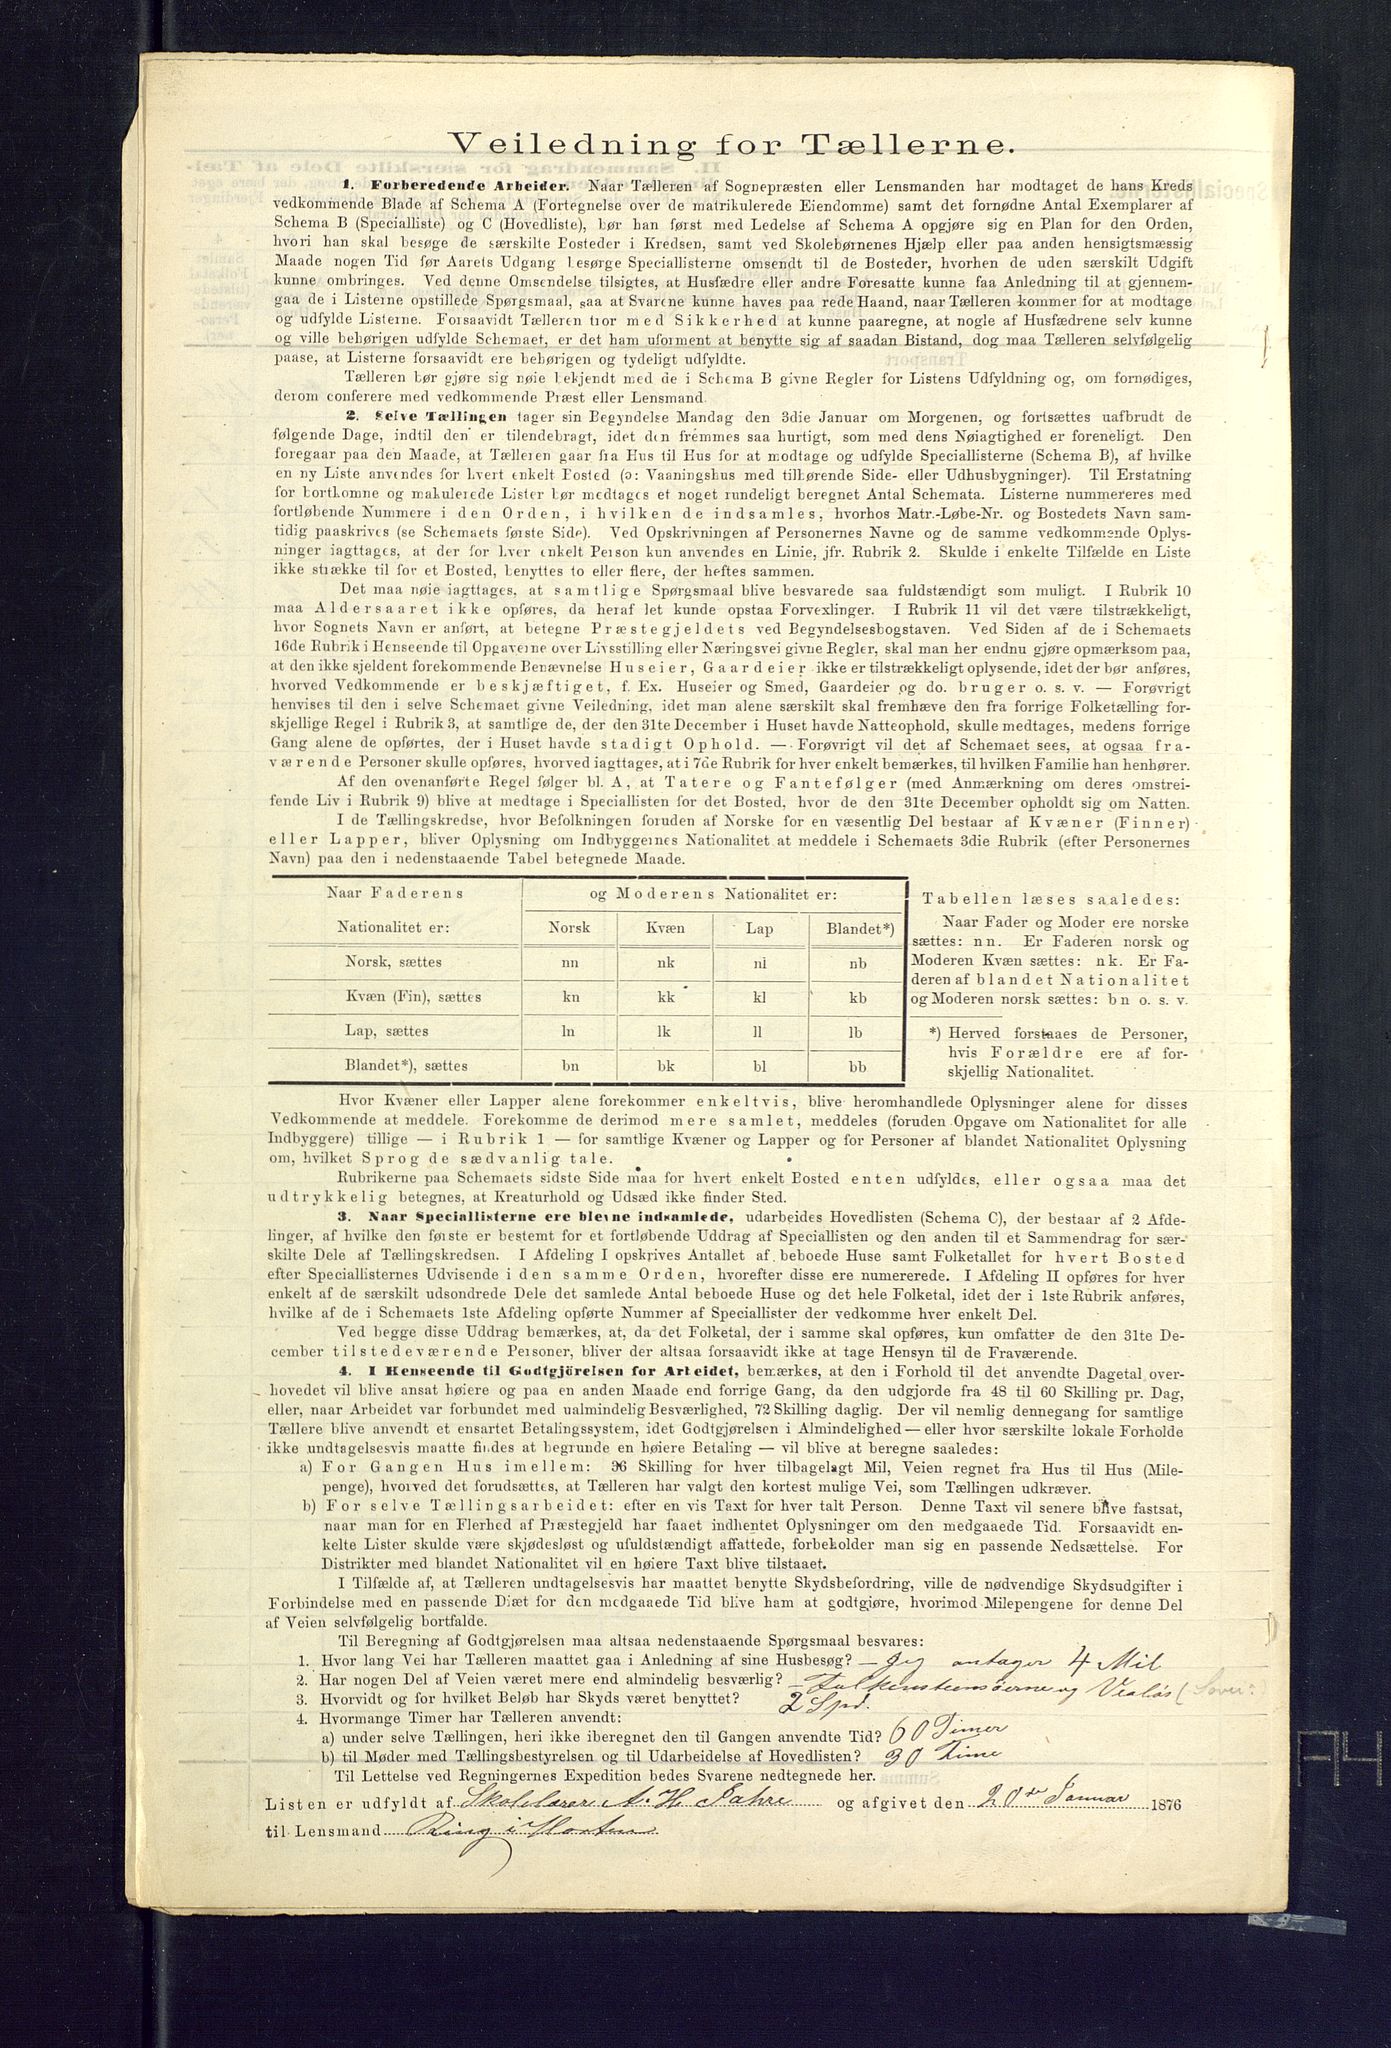 Veiledning for Tællerne.
1. Forberedende Arbeider. Naar Tælleren af Sognepræsten eller Lensmanden har modtaget de hans Kreds
vedkommende Blade af Schema A (Fortegnelse over de matrikulerede Eiendomme) samt det fornødne Antal Exemplarer af
Schema B (Specialliste) og C (Hovedliste), bør han først med Ledelse af Schema A opgjøre sig en Plan for den Orden,
hvori han skal besøge de særskilte Bosteder i Kredsen, samt ved Skolebørnenes Hjælp eller paa anden hensigtsmæssig
Maade nogen Tid før Aarets Udgang besørge Speciallisterne omsendt til de Bosteder, hvorhen de uden særskilt Udgift
kunne ombringes. Ved denne Omsendelse tilsigtes, at Husfædre eller andre Foresatte kunne faa Anledning til at gjennem-
gaa de i Listerne opstillede Spørgsmaal, saa at Svarene kunne haves paa rede Haand, naar Tælleren kommer for at modtage
og udfylde Listerne. Forsaavidt Tælleren tror med Sikkerhed at kunne paaregne, at nogle af Husfædrene selv kunne
og ville behørigen udfylde Schemaet, er det ham uforment at benytte sig af saadan Bistand, dog maa Tælleren selvfølgelig
paase, at Listerne forsaavidt ere behørigen og tydeligt udfyldte.
Tælleren bør gjøre sig nøie bekjendt med de i Schema B givne Regler for Listens Udfyldning og, om fornødiges,
derom conferere med vedkommende Præst eller Lensmand.
2. Selve Tællingen tager sin Begyndelse Mandag den 3die Januar om Morgenen, og fortsættes uafbrudt de
følgende Dage, indtil den er tilendebragt, idet den fremmes saa hurtigt, som med dens Nøiagtighed er foreneligt. Den
foregaar paa den Maade, at Tælleren gaar fra Hus til Hus for at modtage og udfylde Speciallisterne (Schema B), af hvilke
en ny Liste anvendes for hvert enkelt Bosted (ɔ: Vaaningshus med tilhørende Side- eller Udhusbygninger). Til Erstatning
for bortkomne og makulerede Lister bør medtages et noget rundeligt beregnet Antal Schemata. Listerne nummereres med
fortløbende Nummere i den Orden, i hvilken de indsamles, hvorhos Matr.-Løbe-Nr. og Bostedets Navn sam-
tidig paaskrives (se Schemaets første Side). Ved Opskrivningen af Personernes Navne og de samme vedkommende Oplys-
ninger iagttages, at der for hver enkelt Person kun anvendes en Linie, jfr. Rubrik 2. Skulde i enkelte Tilfælde en Liste
ikke strække til for et Bosted, benyttes to eller flere, der heftes sammen.
Det maa nøie iagttages, at samtlige Spørgsmaal blive besvarede saa fuldstændigt som muligt. I Rubrik 10
maa Aldersaaret ikke opføres, da heraf let kunde opstaa Forvexlinger. I Rubrik 11 vil det være tilstrækkeligt,
hvor Sognets Navn er anført, at betegne Præstegjeldets ved Begyndelsesbogstaven. Ved Siden af de i Schemaets
16de Rubrik i Henseende til Opgaverne over Livsstilling eller Næringsvei givne Regler, skal man her endnu gjøre opmærksom paa,
at den ikke sjeldent forekommende Benævnelse Huseier, Gaardeier ikke er tilstrækkeligt oplysende, idet der bør anføres,
hvorved Vedkommende er beskjæftiget, f. Ex. Huseier og Smed, Gaardeier og do. bruger o. s. v. — Forøvrigt
henvises til den i selve Schemaet givne Veiledning, idet man alene særskilt skal fremhæve den fra forrige Folketælling for-
skjellige Regel i Rubrik 3, at samtlige de, der den 31te December i Huset havde Natteophold, skulle medtages, medens forrige
Gang alene de opførtes, der i Huset havde stadigt Ophold. — Forøvrigt vil det af Schemaet sees, at ogsaa fra-
værende Personer skulle opføres, hvorved iagttages, at i 7de Rubrik for hver enkelt bemærkes, til hvilken Familie han henhører.
Af den ovenanførte Regel følger bl. A, at Tatere og Fantefølger (med Anmærkning om deres omstrei-
fende Liv i Rubrik 9) blive at medtage i Speciallisten for det Bosted, hvor de den 31te December opholdt sig om Natten.
I de Tællingskredse, hvor Befolkningen foruden af Norske for en væsentlig Del bestaar af Kvæner (Finner)
eller Lapper, bliver Oplysning om Indbyggernes Nationalitet at meddele i Schemaets 3die Rubrik (efter Personernes
Navn) paa den i nedenstaaende Tabel betegnede Maade.
Naar Faderens og Moderens Nationalitet er:
Nationalitet er: Norsk Kvæn Lap Blandet*)
Norsk, sættes nn nk nl nb
Kvæn (Fin), sættes kn kk kl kb
Lap, sættes ln lk ll lb
Blandet*), sættes bn bk bl bb
Tabellen læses saaledes:
Naar Fader og Moder ere norske
sættes: nn. Er Faderen norsk og
Moderen Kvæn sættes: nk. Er Fa-
deren af blandet Nationalitet
og Moderen norsk sættes: bn o. s. v.
*) Herved forstaaes de Personer,
hvis Forældre ere af for-
skjellig Nationalitet.
Hvor Kvæner eller Lapper alene forekommer enkeltvis, blive heromhandlede Oplysninger alene for disses
Vedkommende at meddele. Forekomme de derimod mere samlet, meddeles (foruden Opgave om Nationalitet for alle
Indbyggere) tillige — i Rubrik 1 — for samtlige Kvæner og Lapper og for Personer af blandet Nationalitet Oplysning
om, hvilket Sprog de sædvanlig tale.
Rubrikerne paa Schemaets sidste Side maa for hvert enkelt Bosted enten udfyldes, eller ogsaa maa det
udtrykkelig betegnes, at Kreaturhold og Udsæd ikke finder Sted.
3. Naar Speciallisterne ere blevne indsamlede, udarbeides Hovedlisten (Schema C), der bestaar af 2 Afde-
linger, af hvilke den første er bestemt for et fortløbende Uddrag af Speciallisten og den anden til et Sammendrag for sær-
skilte Dele af Tællingskredsen. I Afdeling I opskrives Antallet af beboede Huse samt Folketallet for hvert Bosted
efter Speciallisternes Udvisende i den samme Orden, hvorefter disse ere numererede. I Afdeling II opføres for hver
enkelt af de særskilt udsondrede Dele det samlede Antal beboede Huse og det hele Folketal, idet der i 1ste Rubrik anføres,
hvilke af de i Schemaets 1ste Afdeling opførte Nummer af Speciallister der vedkomme hver enkelt Del.
Ved begge disse Uddrag bemærkes, at, da det Folketal, der i samme skal opføres, kun omfatter de den 31te De-
cember tilstedeværende Personer, bliver der altsaa forsaavidt ikke at tage Hensyn til de Fraværende.
4. I Henseende til Godtgjörelsen for Arbeidet, bemærkes, at den i Forhold til det anvendte Dagetal over-
hovedet vil blive ansat høiere og paa en anden Maade end forrige Gang, da den udgjorde fra 48 til 60 Skilling pr. Dag,
eller, naar Arbeidet var forbundet med ualmindelig Besværlighed, 72 Skilling daglig. Der vil nemlig dennegang for samtlige
Tællere blive anvendt et ensartet Betalingssystem, idet Godtgjørelsen i Almindelighed — eller hvor særskilte lokale Forholde
ikke undtagelsesvis maatte findes at begrunde en høiere Betaling — vil blive at beregne saaledes:
a) For Gangen Hus imellem: 36 Skilling for hver tilbagelagt Mil, Veien regnet fra Hus til Hus (Mile-
penge), hvorved det forudsættes, at Tælleren har valgt den kortest mulige Vei, som Tællingen udkræver.
b) For selve Tællingsarbeidet: efter en vis Taxt for hver talt Person. Denne Taxt vil senere blive fastsat,
naar man for en Flerhed af Præstegjeld har faaet indhentet Oplysninger om den medgaaede Tid. Forsaavidt en-
kelte Lister skulde være skjødesløst og ufuldstændigt affattede, forbeholder man sig en passende Nedsættelse. For
Distrikter med blandet Nationalitet vil en høiere Taxt blive tilstaaet.
I Tilfælde af, at Tælleren undtagelsesvis har maattet benytte Skydsbefordring, ville de nødvendige Skydsudgifter i
Forbindelse med en passende Diæt for den medgaaede Tid blive ham at godtgjøre, hvorimod Milepengene for denne Del
af Veien selvfølgelig bortfalde.
Til Beregning af Godtgjørelsen maa altsaa nedenstaaende Spørgsmaal besvares:
1. Hvor lang Vei har Tælleren maattet gaa i Anledning af sine Husbesøg? — Jeg antager 4 Mil
2. Har nogen Del af Veien været mere end almindelig besværlig? — Falkensteensöerne og Vealös
3. Hvorvidt og for hvilket Beløb har Skyds været benyttet? 2 Spd.
4. Hvormange Timer har Tælleren anvendt:
a) under selve Tællingen, heri ikke iberegnet den til Gangen anvendte Tid? 60 Timer
b) til Møder med Tællingsbestyrelsen og til Udarbeidelse af Hovedlisten? 30 Time
Til Lettelse ved Regningernes Expedition bedes Svarene nedtegnede her.
Listen er udfyldt af Skolelærer A. H. Jahre og afgivet den 20de Januar 1876
til Lensmand Ring i Horten